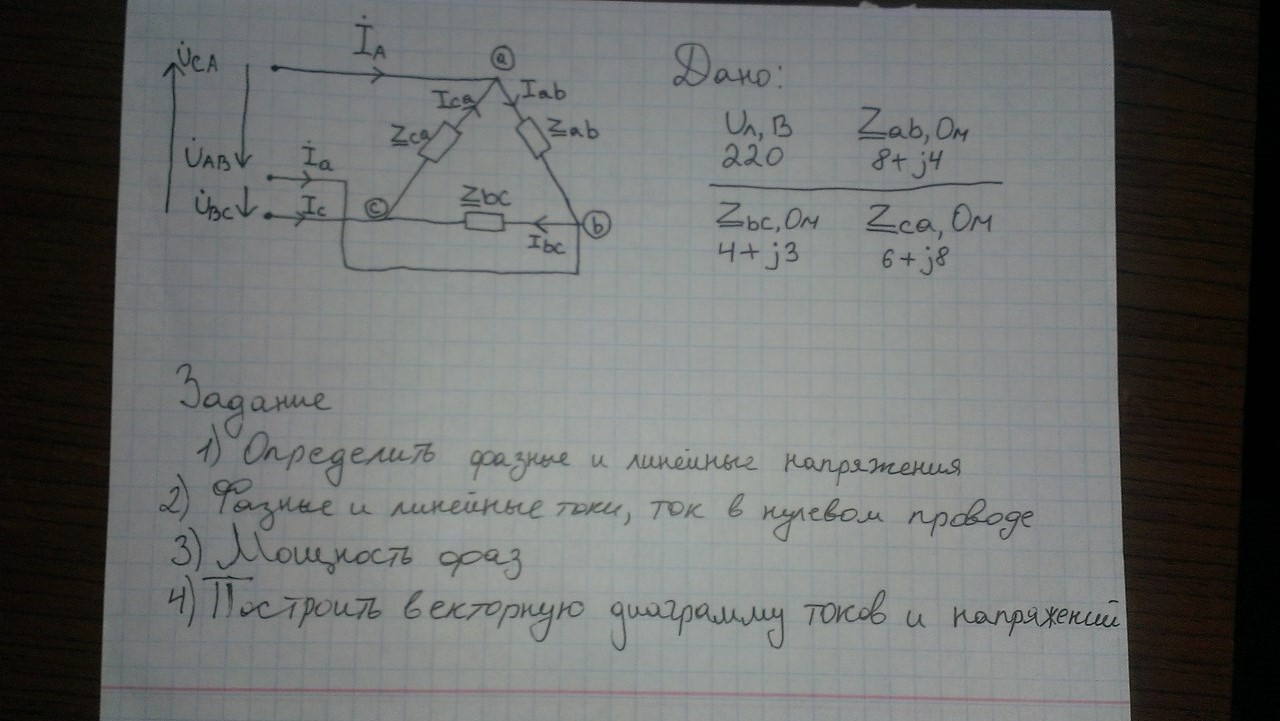 U̇CA
İA
ⓐ
Ica
Iab
Zca
Zab
U̇AB
İa
U̇BC
Ic
ⓒ
Zbc
ⓑ
Ibc
Дано:
Uл, В Zab, Ом
220 8 + j4
Zbc, Ом Zca, Ом
4 + j3 6 + j8
Задание
1) Определить фазные и линейные напряжения
2) Фазные и линейные токи, ток в нулевом проводе
3) Мощность фаз
4) Построить векторную диаграмму токов и напряжений